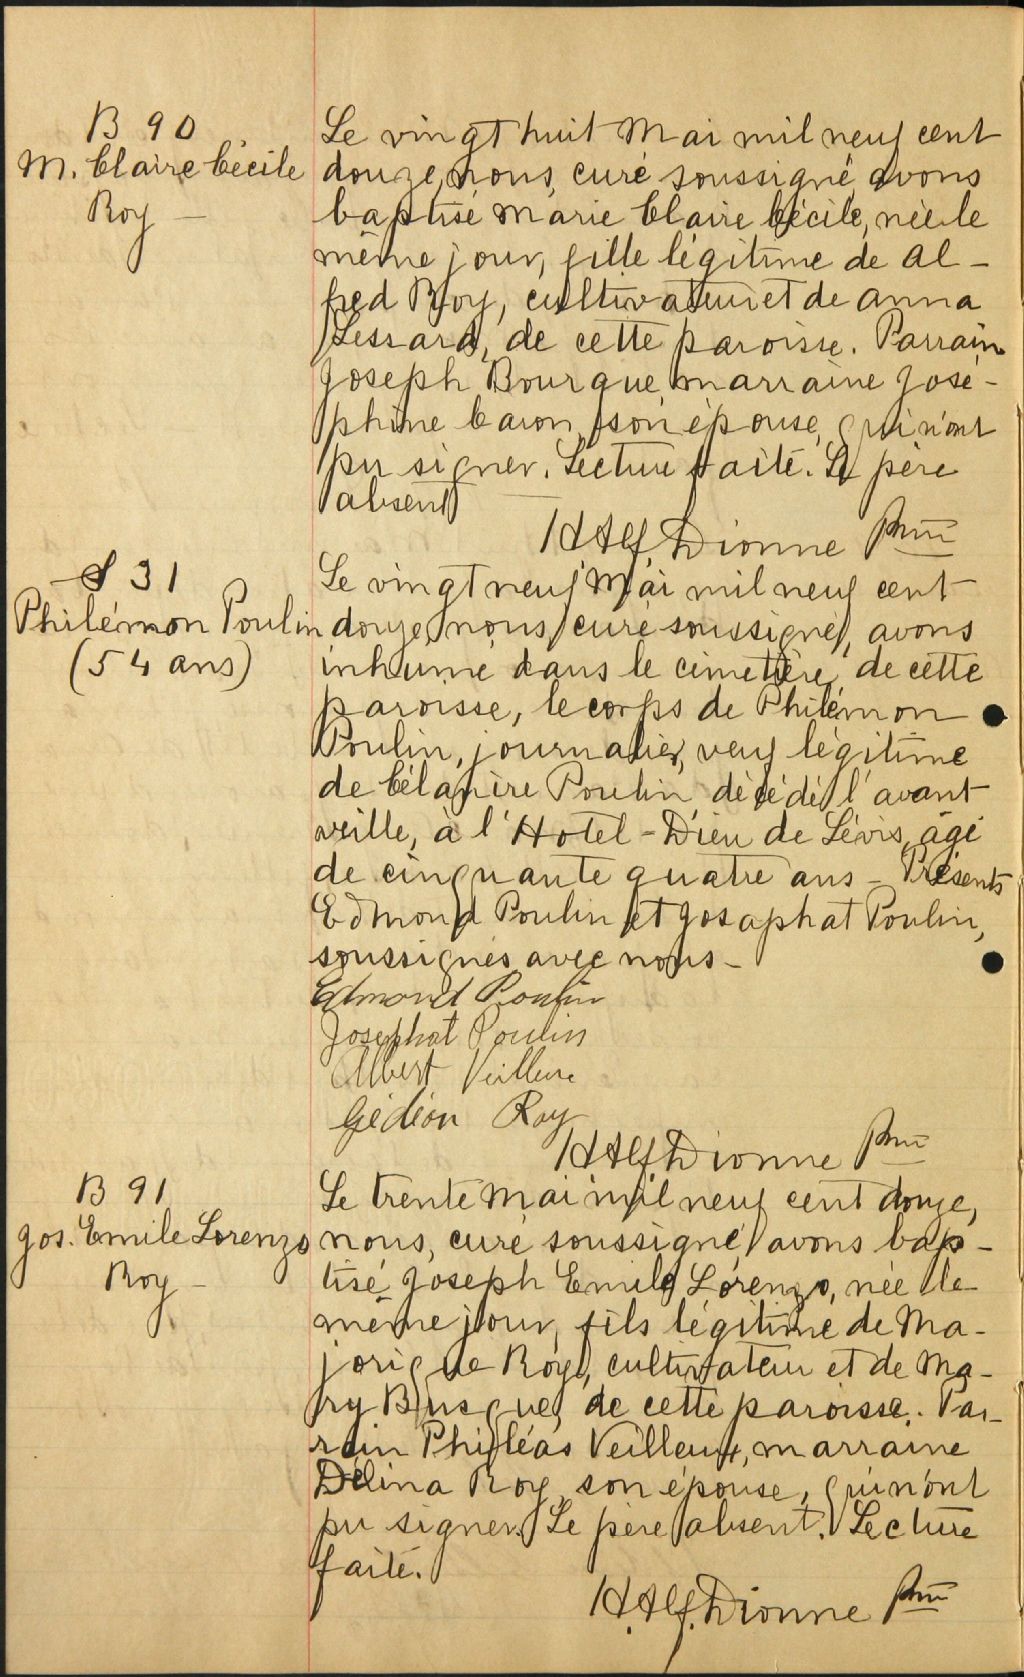 B 90
M. Claire Cécile
Roy —
Le vingt huit Mai mil neuf cent
douze, nous, curé soussigné, avons
baptisé Marie Claire Cécile, née le
même jour, fille légitime de Al-
fred Roy, cultivateur et de Anna
Lessard, de cette paroisse. Parrain
Joseph Bourque, marraine José-
phine Caron, son épouse, qui n'ont
pu signer. Lecture faite. Le père
absent
H Alf. Dionne Ptre
S 31
Philémon Poulin
(54 ans)
Le vingt neuf Mai mil neuf cent
douze, nous, curé soussigné, avons
inhumé dans le cimetière de cette
paroisse, le corps de Philémon
Poulin, journalier, veuf légitime
de Célanire Poulin, décédé l'avant
veille, à l'Hotel-Dieu de Lévis, âgé
de cinquante quatre ans - Présents
Edmond Poulin et Josaphat Poulin,
soussignés avec nous -
Edmond Poulin
Josephat Poulin
Albert Veilleux
Gédéon Roy
H Alf. Dionne Ptre
B 91
Jos. Emile Lorenzo
Roy —
Le trente Mai mil neuf cent douze,
nous, curé soussigné, avons bap-
tisé Joseph Emile Lorenzo, née le
même jour, fils légitime de Ma-
jorique Roy, cultivateur et de Ma-
ry Busque, de cette paroisse. Par-
rain Philéas Veilleux, marraine
Délina Roy, son épouse, qui n'ont
pu signer. Le père absent. Lecture
faite.
H. Alf. Dionne Ptre